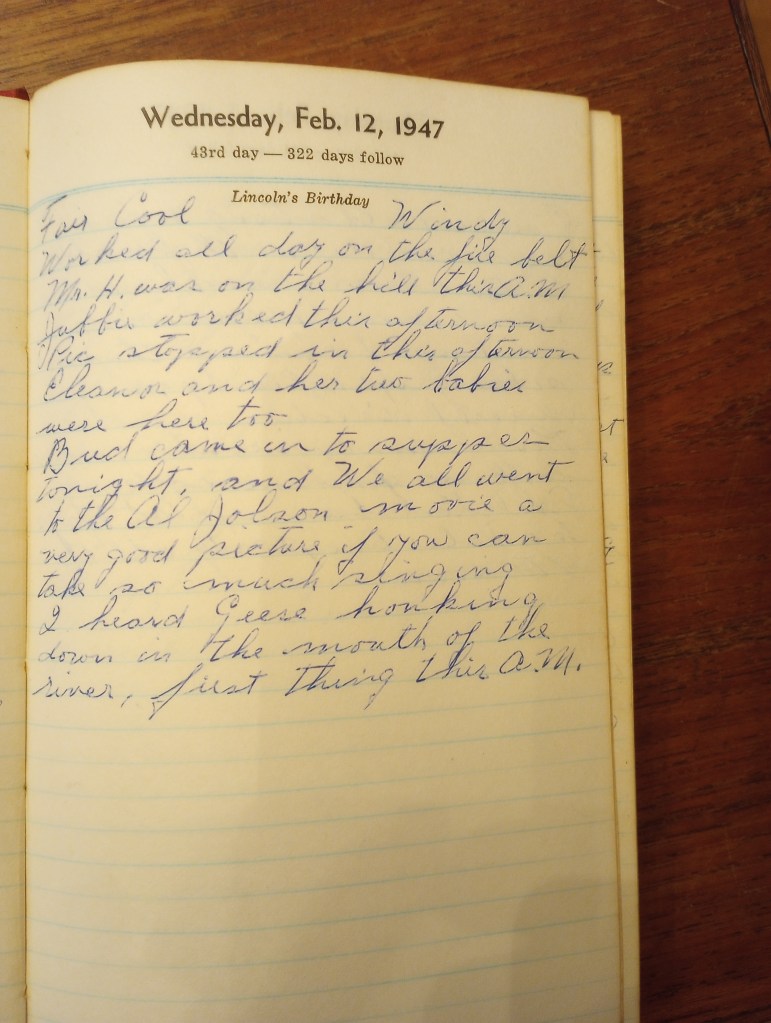 Wednesday, Feb. 12, 1947
43rd day — 322 days follow
Lincoln's Birthday
Fair Cool Windy
Worked all day on the fire belt
Mr. H. was on the hill this A.M
worked this afternoon
Pic stopped in this afternoon
Eleanor and her two babies
were here too
Bud came in to supper
tonight, and We all went
to the Al Jolson movie a
very good picture if you can
take so much singing
I heard Geese honking
down in the mouth of the
river, first thing this A.M.